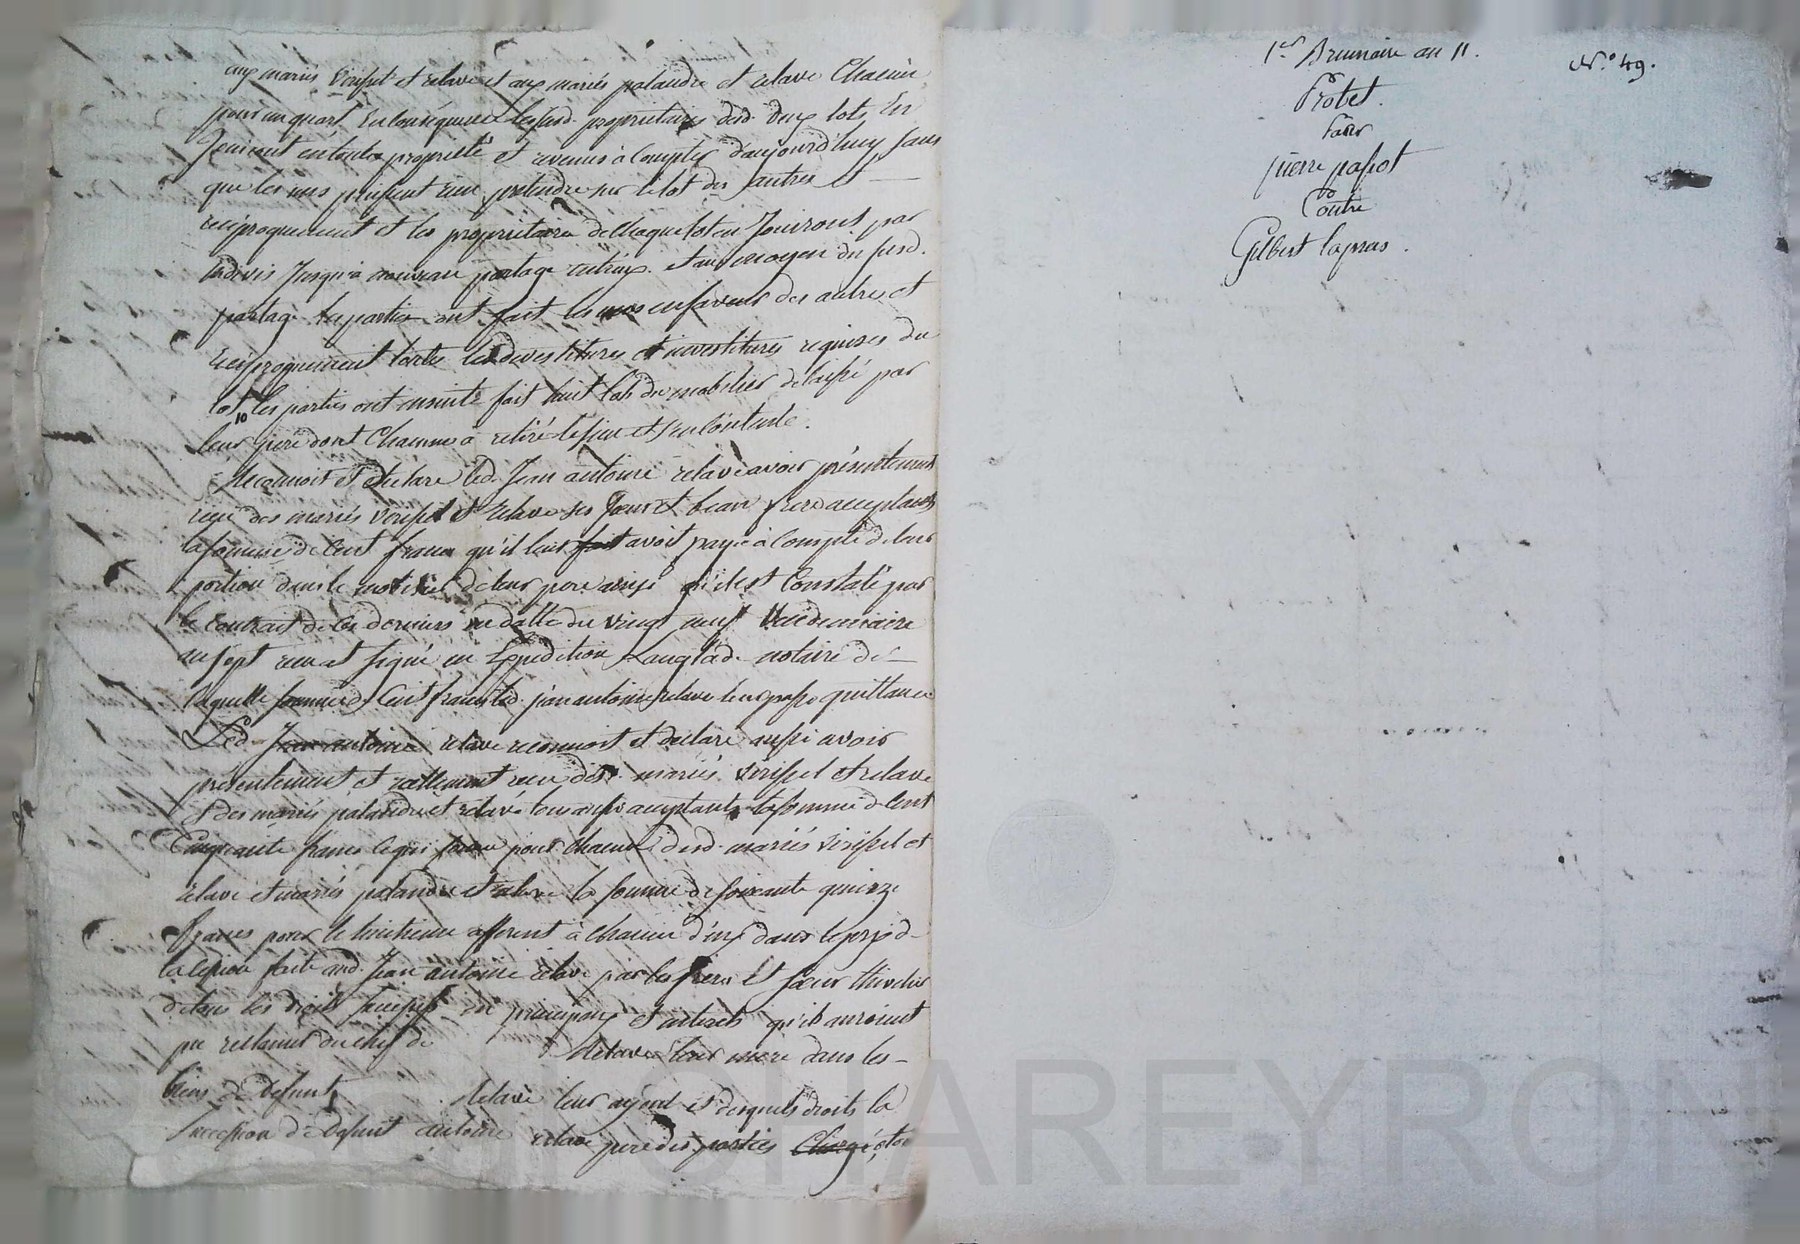 aux mariés Virissel et relave et aux mariés palandre et relave Chacun
pour un quart En Consequence lesusd. proprietaires desd. deux lots En
Jouiront en toute proprieté et revenus à Compter d'aujourd'huy sans
que les uns puissent rien pretendre sur le lot des autres et
reciproquement et les proprietaires de Chaque lot en Jouiront par
Indivis Jusqu'à nouveau partage entreux. et au moyen du susd.
partage les parties ont fait les uns en faveur des autres et
reciproquement toutes les devestitures et investitures requises du
tot, les parties ont ensuite fait huit lots du mobilier delaissé par
10
leur pere dont Chacun a retiré le sien et s'en Contente.
Reconnoit et declare led. Jean antoine relave avoir présentement
reçu des mariés Virissel et relave ses Soeur et beau frere acceptants
la somme de Cent francs qu'il leur avoit payé à Compte de leur
portion dans le mobilier de leur pere ainsi qu'il est Constaté par
le Contrait de Ces derniers en datte du vingt neuf Vendemiaire
an sept signé en Expedition Langlade notaire de
laquelle somme de Cent francs led. jean antoine relave leur passe quittance
Led. Jean antoine relave reconnoit et declare aussi avoir
présentement et reellement reçu des d. mariés Virissel et relave
& des mariés palandre et relave tous aussi acceptants la somme de Cent
Cinquante francs Ce qui pour Chacun desd. mariés Virissel et
relave et mariés palandre et relave la somme de soixante quinze
francs pour le huitieme afferent à Chacun d'eux dans le prix de
la Cession faite aud. Jean antoine relave par les freres Et Soeur
de tous les droits Successifs en principaux et interets qu'ils auroient
pu reclamer du chef de relave leur mere dans les
biens de Defunt relave leur ayeul et desquels droits la
Succession de Defunt antoine relave pere des parties Chargé étoit
1er Brumaire an 11.
N.º 49.
Protet.
Pour
pierre passot
Contre
Gilbert lapras.
CHAREYRON